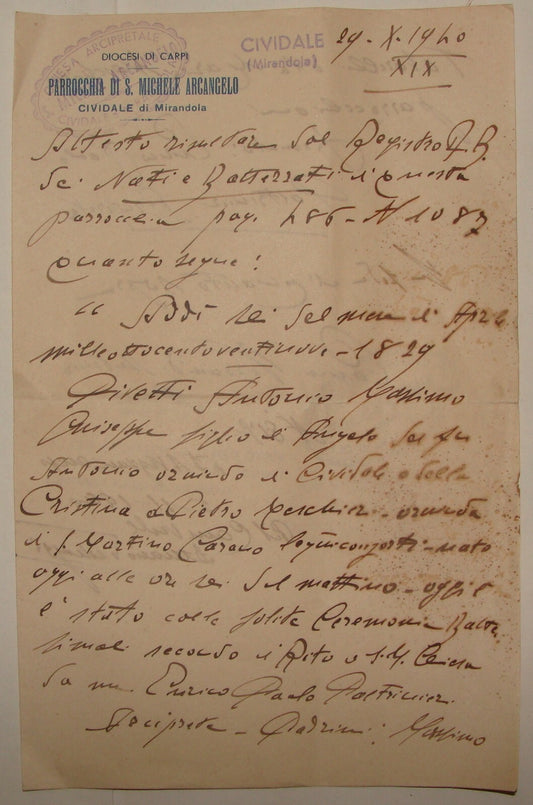 DIOCESI DI CARPI
PARROCCHIA DI S. MICHELE ARCANGELO
CIVIDALE di Mirandola
CIVIDALE
(Mirandola)
29 - X - 1940
XIX
Attesto risultare dal Registro
dei Nati e Battezzati di questa
parrocchia pag. 486 - N 1087
quanto segue:
" Addì sei del mese di Aprile
milleottocentoventinove - 1829
Antonio Massimo
Giuseppe figlio di Angelo del fu
Antonio oriundo di Cividale e della
Cristina di Pietro oriunda
di S. Martino Carano legit. consorti - nato
oggi alle ore sei del mattino - oggi
è stato colle solite Ceremonie Battesi
simali secondo il Rito di S. M. Chiesa
da me Enrico Paolo
Arciprete - Padrini: Massimo